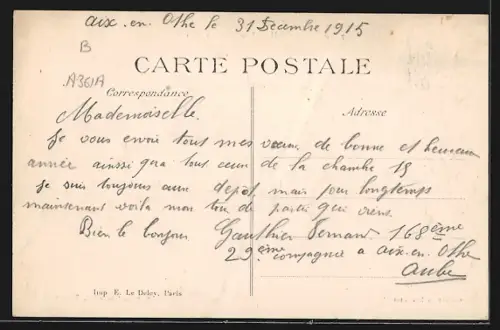 aix. en. Othe le 31 Decembre 1915
B
A361A
CARTE POSTALE
Correspondance
Adresse
Mademoiselle.
Je vous envoie tout mes vœux de bonne et heureuse
année ainssi qua tous ceux de la chambre 15
je suis toujours aux depot mais pour longtemps
maintenant voila mon tour de partir qui viens
Bien le bonjour Gauthier Fernand 168ème
29ème compagnie a aix. en. Othe
Aube
Imp. E. Le Deley, Paris